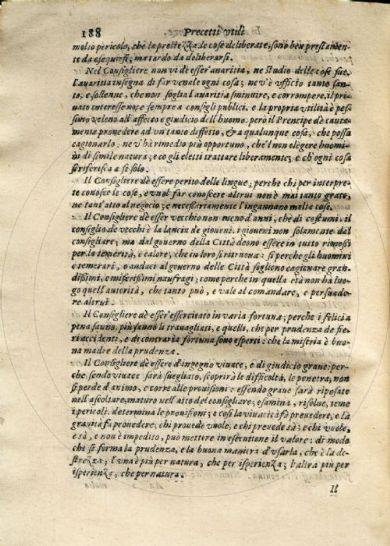 188 Precetti utili
molto pericolo, che le prestezza le cose deliberate, sono ben prestamen-
te da esequirsi; ma tardo da deliberarsi.
Nel Consigliere non vi dè esser' auaritia, nè studio delle cose sue.
L'auaritia insegna di far venale ogni cosa; ne v'è vfficio tanto san-
to, e solenne, che non soglia l'auaritia sminuire, e corrompere, il pri-
uato interesse noce sempre a consigli publici, e la propria vtilità è pes-
simo veleno all'affetto e giudicio dell'huomo. però il Prencipe dè caute-
mente prouedere ad vn tanto diffetto, & a qualunque cosa, che possa
cagionarlo. ne v'hà rimedio più opportuno, che'l non elegere huomi-
ni di simile natura; e co gli eletti trattar liberamente, e ch'ogni cosa
si riferisca a se solo.
Il Consigliere dè essere perito delle lingue, perche chi per interpre-
te conosce le cose, e vuol far conoscere altrui non è mai tanto grato,
ne tant'atto al negocio; e necessariamente l'ingannano molte cose.
Il Consigliere dè esser vecchio non meno d'anni, chè di costumi. il
consiglio de vecchi è la lancia de giouani. i giouani non solamente dal
consigliare; ma dal gouerno della Città deuno essere in tutto rimossi
per la temerità, e calore, che in loro si ritroua: si perche gli huomini
e temerari, e audaci al gouerno delle Città sogliono cagionare gran-
dissimi, e miserissimi naufragi; come perche in quella età non hà luo-
go quell'autorità, che tanto può, e vale al comandare, e persuade-
re altrui.
Il Consigliere dè esser essercitato in varia fortuna; perche i felici a
pena sauno, più sanno li trauagliati, e quelli, che per prudenza de fie-
ri accidenti, e di contraria fortuna sono esperti: che la miseria è buo-
na madre della prudenza.
Il Consigliere dè essere d'ingegno viuace, e di giudicio graue; per-
che sendo viuace sarà suegliato, scoprirà le difficoltà, le penetra, non
si perde d'animo, e corre alle prouisioni: essendo graue sarà riposato
nell'ascoltare, maturo nell'atto del consigliare; esamina, risolue, teme
i pericoli. determina le prouisioni; e così la viuacità fà prendere, e la
grauità fà prouedere, chi prouede vuole, e chi preuede sà; e chi vuole,
e sà, e non è impedito, può mettere in essecutione il valore: di modo
chè si forma la prudenza, e la buona maniera d'vsarla, che è la de-
strezza; l'vna è più per natura, che per isperienza; l'altra più per
isperienza, che per natura.
Il